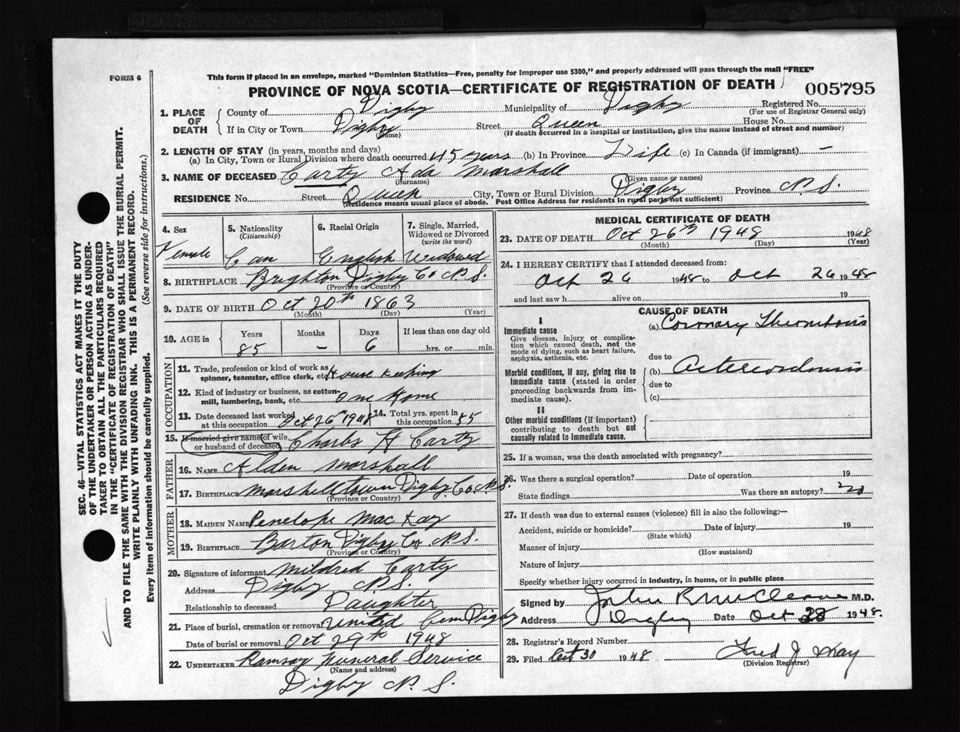 FORM 6
This form if placed in an envelope, marked "Dominion Statistics—Free, penalty for improper use $300," and properly addressed will pass through the mail "FREE"
PROVINCE OF NOVA SCOTIA—CERTIFICATE OF REGISTRATION OF DEATH 005795
1. PLACE OF DEATH County of Digby Municipality of Digby Registered No. (For use of Registrar General only)
If in City or Town Digby (Name) Street Queen House No.
(If death occurred in a hospital or institution, give the name instead of street and number)
2. LENGTH OF STAY (in years, months and days)
(a) In City, Town or Rural Division where death occurred 45 years (b) In Province Life (c) In Canada (if immigrant) —
3. NAME OF DECEASED Carty Ada Marshall
(Surname) (Given name or names)
RESIDENCE No. Street Queen City, Town or Rural Division Digby Province N.S.
(Residence means usual place of abode. Post Office Address for residents in rural parts not sufficient)
4. Sex Female
5. Nationality (Citizenship) Can
6. Racial Origin English
7. Single, Married, Widowed or Divorced (write the word) Widowed
8. BIRTHPLACE Brighton Digby Co N.S.
(Province or Country)
9. DATE OF BIRTH Oct 20th 1863
(Month) (Day) (Year)
10. AGE in Years 85 Months — Days 6 If less than one day old hrs. or min.
OCCUPATION
11. Trade, profession or kind of work as spinner, teamster, office clerk, etc. House keeping
12. Kind of industry or business, as cotton mill, lumbering, bank, etc. own Home
13. Date deceased last worked at this occupation Oct 26th 1948 14. Total yrs. spent in this occupation 55
15. If married give name of wife or husband of deceased Charles H Carty
FATHER
16. NAME Alden Marshall
17. BIRTHPLACE Marshalltown Digby Co N.S.
(Province or Country)
MOTHER
18. MAIDEN NAME Penelope Mac Kay
19. BIRTHPLACE Barton Digby Co N.S.
(Province or Country)
20. Signature of informant Mildred Carty
Address Digby N.S.
Relationship to deceased Daughter
21. Place of burial, cremation or removal United Cem Digby
Date of burial or removal Oct 29th 1948
22. UNDERTAKER Ramsay Funeral Service
(Name and address)
Digby N.S.
MEDICAL CERTIFICATE OF DEATH
23. DATE OF DEATH Oct 26th 1948 1948
(Month) (Day) (Year)
24. I HEREBY CERTIFY that I attended deceased from:
Oct 26 1948 to Oct 26 1948
and last saw h alive on 19
CAUSE OF DEATH
I
Immediate cause
Give disease, injury or complication which caused death, not the mode of dying, such as heart failure, asphyxia, asthenia, etc.
(a) Coronary Thrombosis
due to
Morbid conditions, if any, giving rise to immediate cause (stated in order proceeding backwards from immediate cause).
(b)
due to
(c)
II
Other morbid conditions (if important) contributing to death but not causally related to immediate cause.
25. If a woman, was the death associated with pregnancy?
26. Was there a surgical operation? Date of operation 19
State findings Was there an autopsy? no
27. If death was due to external causes (violence) fill in also the following:—
Accident, suicide or homicide? Date of injury 19
(State which)
Manner of injury
(How sustained)
Nature of injury
Specify whether injury occurred in industry, in home, or in public place
Signed by John R M.D.
Address Digby Date Oct 28 1948.
28. Registrar's Record Number
29. Filed Oct 30 1948 Fred J May
(Division Registrar)
SEC. 46—VITAL STATISTICS ACT MAKES IT THE DUTY
OF THE UNDERTAKER OR PERSON ACTING AS UNDER-
TAKER TO OBTAIN ALL THE PARTICULARS REQUIRED
IN THE "CERTIFICATE OF REGISTRATION OF DEATH"
AND TO FILE THE SAME WITH THE DIVISION REGISTRAR WHO SHALL ISSUE THE BURIAL PERMIT.
WRITE PLAINLY WITH UNFADING INK. THIS IS A PERMANENT RECORD.
Every item of information should be carefully supplied. (See reverse side for instructions.)